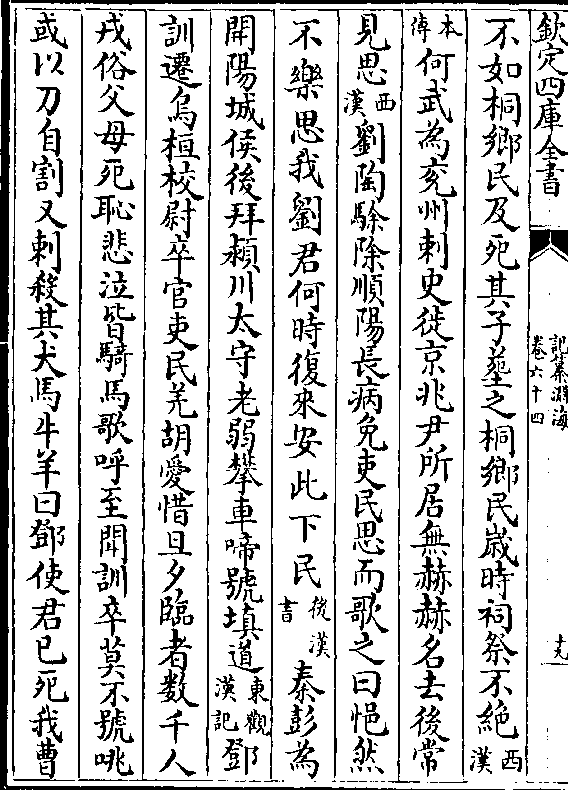 欽定四庫全書
記纂淵海
卷六十四
不如桐鄉民及死其子塟之桐鄉民歲時祠祭不絶西漢
本傳何武為兖州刺史徙京兆尹所居無赫赫名去後常
見思西漢劉陶駼除順陽長病免吏民思而歌之曰悒然
不樂思我劉君何時復來安此下民後漢書秦彭為
開陽城侯後拜潁川太守老弱攀車啼號填道東觀漢記鄧
訓遷烏桓校尉卒官吏民羌胡愛惜旦夕臨者數千人
戎俗父母死恥悲泣皆騎馬歌呼至聞訓卒莫不號咷
或以刀自割又刺殺其犬馬牛羊曰鄧使君已死我曹